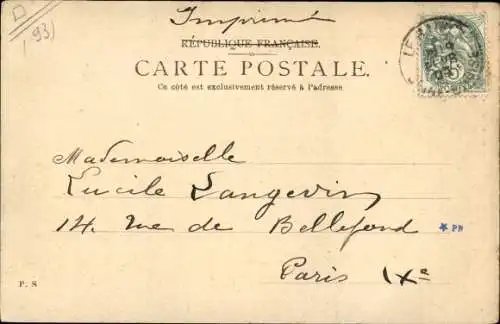 (93)
Imprimé
RÉPUBLIQUE FRANÇAISE.
CARTE POSTALE.
Ce côté est exclusivement réservé à l'adresse
Mademoiselle
Lucile Langevin
14. rue de Bellefond
★ PN
Paris IXe
P. S